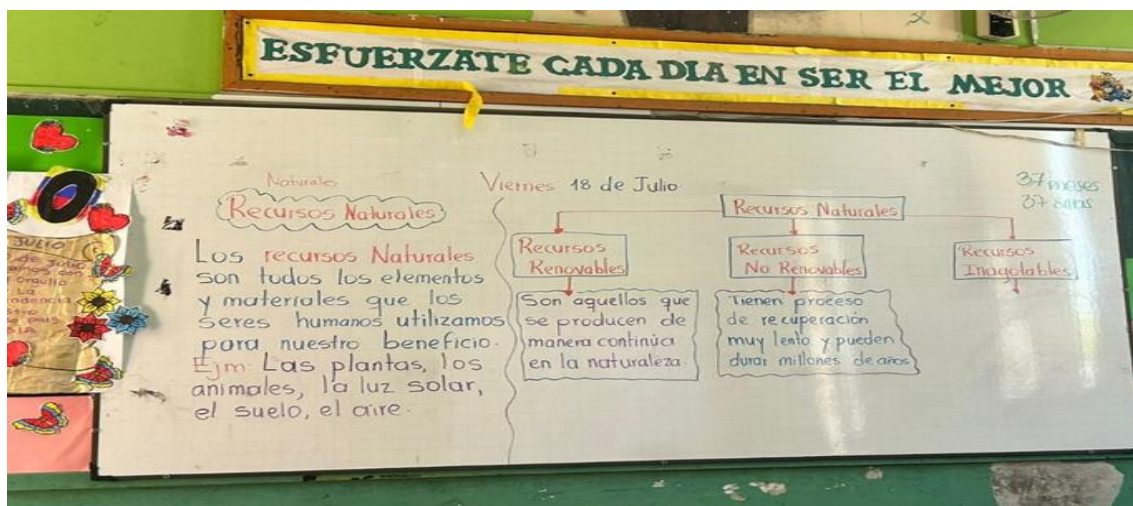 ESFUERZATE CADA DIA EN SER EL MEJOR
Naturales
Viernes 18 de Julio
37 meses
37 sillas
Recursos Naturales
Los recursos Naturales
son todos los elementos
y materiales que los
seres humanos utilizamos
para nuestro beneficio.
Ejm: Las plantas, los
animales, la luz solar,
el suelo, el aire.
Recursos Naturales
Recursos
Renovables
Son aquellos que
se producen de
manera continúa
en la naturaleza.
Recursos
No Renovables
Tienen proceso
de recuperación
muy lento y pueden
durar millones de años
Recursos
Inagotables
JULIO
de Julio
con
orgullo
La